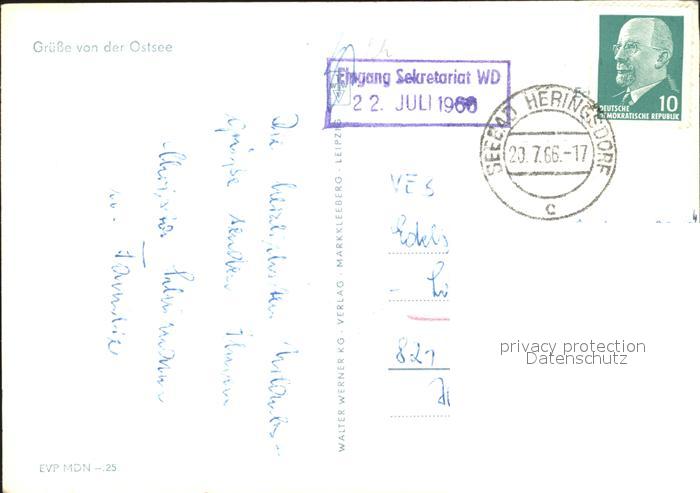 Grüße von der Ostsee
Eingang Sekretariat WD
22. JULI 1966
DEUTSCHE
DEMOKRATISCHE REPUBLIK
10
SEEBAD HERINGSDORF
20.7.66.-17
c
Die herzlichsten Urlaubs-
grüße senden Ihnen
u. Familie
WALTER WERNER KG · VERLAG · MARKKLEEBERG · LEIPZIG
VEB
Edels
821
privacy protection
Datenschutz
EVP MDN -.25